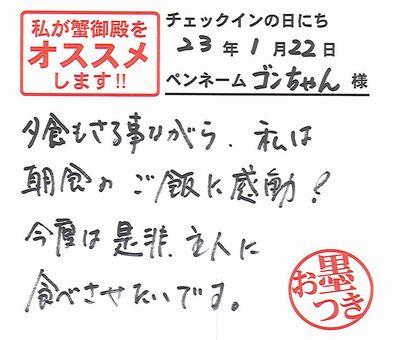 私が蟹御殿を
オススメ
します!!
チェックインの日にち
23年1月22日
ペンネーム ゴンちゃん 様
夕食もさる事ながら、私は
朝食のご飯に感動!
今度は是非、主人に
食べさせたいです。
お墨つき